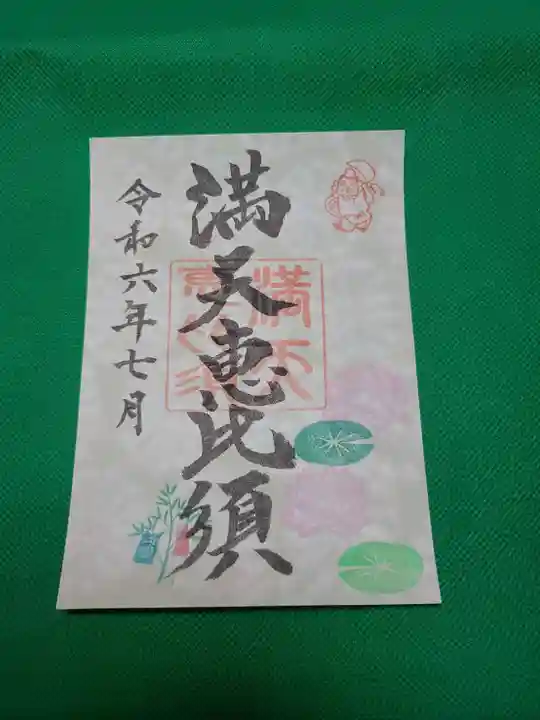 満天恵比須
令和六年七月
満天
恵比須